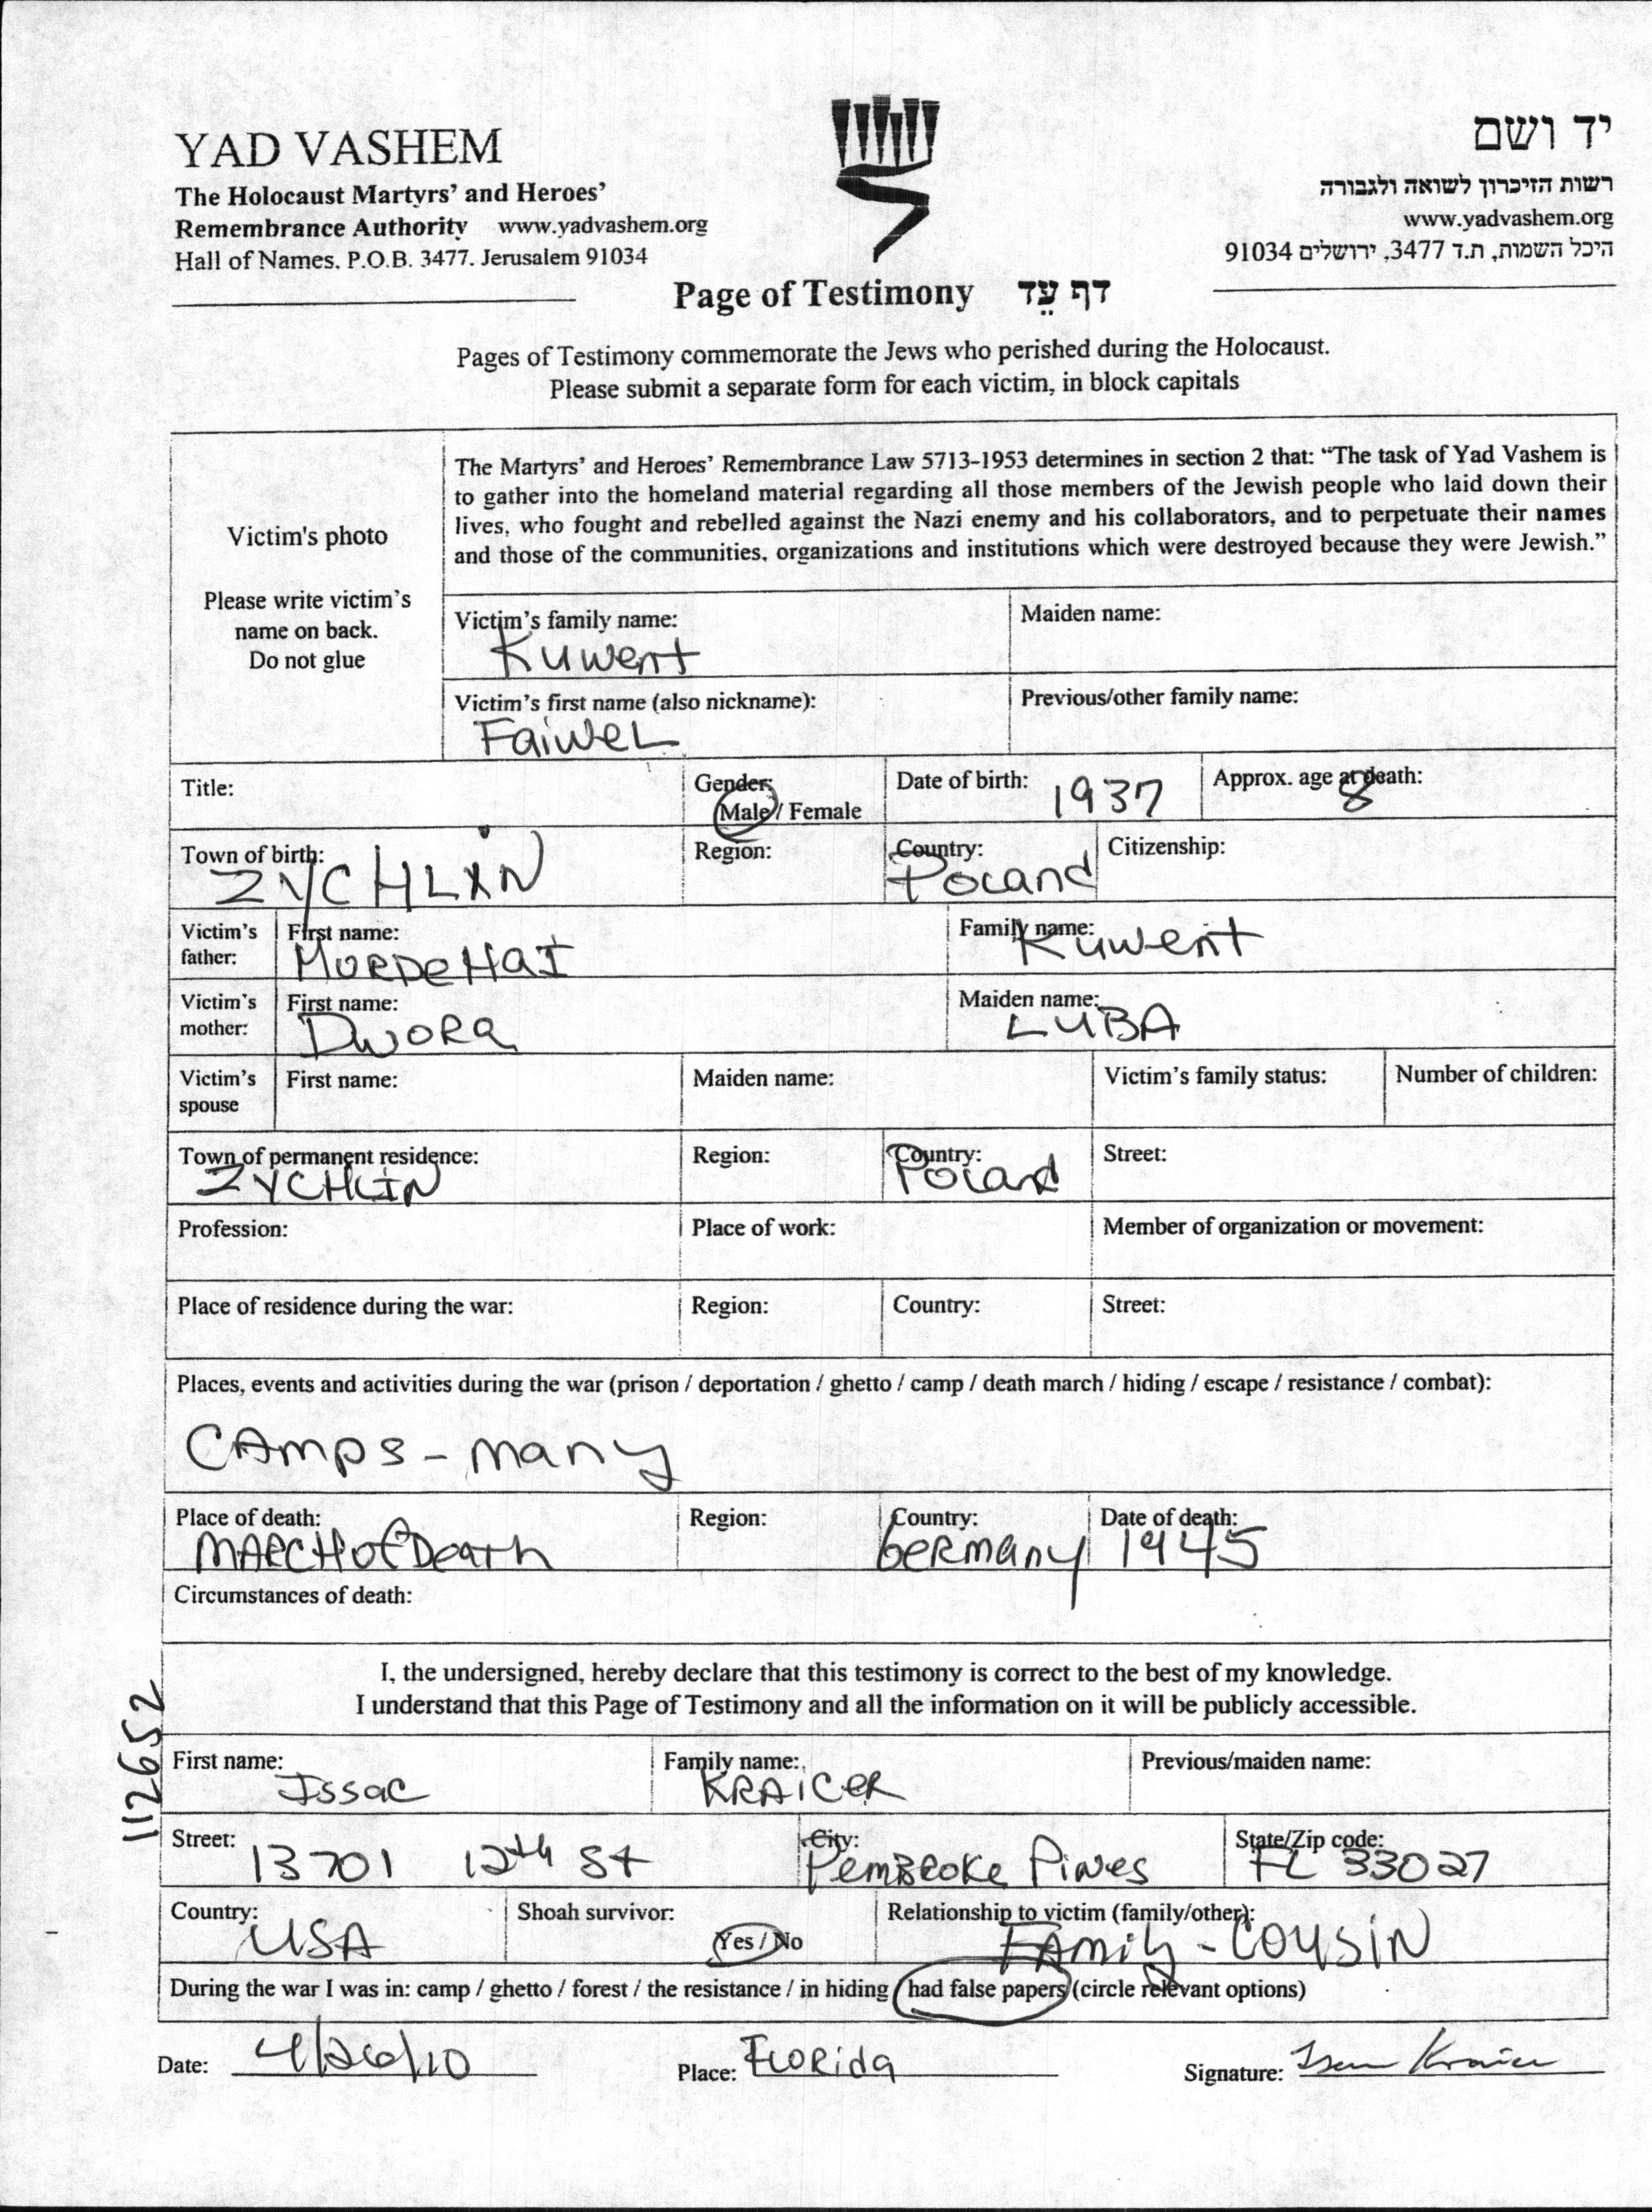 YAD VASHEM
The Holocaust Martyrs' and Heroes'
Remembrance Authority www.yadvashem.org
Hall of Names. P.O.B. 3477. Jerusalem 91034
יד ושם
רשות הזיכרון לשואה ולגבורה
www.yadvashem.org
היכל השמות, ת.ד 3477, ירושלים 91034
Page of Testimony דף עֵד
Pages of Testimony commemorate the Jews who perished during the Holocaust.
Please submit a separate form for each victim, in block capitals
Victim's photo
Please write victim's
name on back.
Do not glue
The Martyrs' and Heroes' Remembrance Law 5713-1953 determines in section 2 that: “The task of Yad Vashem is
to gather into the homeland material regarding all those members of the Jewish people who laid down their
lives, who fought and rebelled against the Nazi enemy and his collaborators, and to perpetuate their names
and those of the communities, organizations and institutions which were destroyed because they were Jewish.”
Victim's family name: Maiden name:
Kuwent
Victim's first name (also nickname): Previous/other family name:
FaiweL
Title: Gender: Male / Female Date of birth: 1937 Approx. age at death: 8
Town of birth: ZYCHLIN Region: Country: Poland Citizenship:
Victim's father: First name: MORDeHaI Family name: Kuwent
Victim's mother: First name: DwoRa Maiden name: LUBA
Victim's spouse First name: Maiden name: Victim's family status: Number of children:
Town of permanent residence: ZYCHLIN Region: Country: Poland Street:
Profession: Place of work: Member of organization or movement:
Place of residence during the war: Region: Country: Street:
Places, events and activities during the war (prison / deportation / ghetto / camp / death march / hiding / escape / resistance / combat):
CAmps - many
Place of death: MARCH of Death Region: Country: Germany Date of death: 1945
Circumstances of death:
I, the undersigned, hereby declare that this testimony is correct to the best of my knowledge.
I understand that this Page of Testimony and all the information on it will be publicly accessible.
112652
First name: Issac Family name: KRAICER Previous/maiden name:
Street: 13701 12th St City: PemBROKe Pines State/Zip code: FL 33027
Country: USA Shoah survivor: Yes / No Relationship to victim (family/other): FAmily - COUSIN
During the war I was in: camp / ghetto / forest / the resistance / in hiding / had false papers (circle relevant options)
Date: 4/26/10 Place: FLORida Signature: